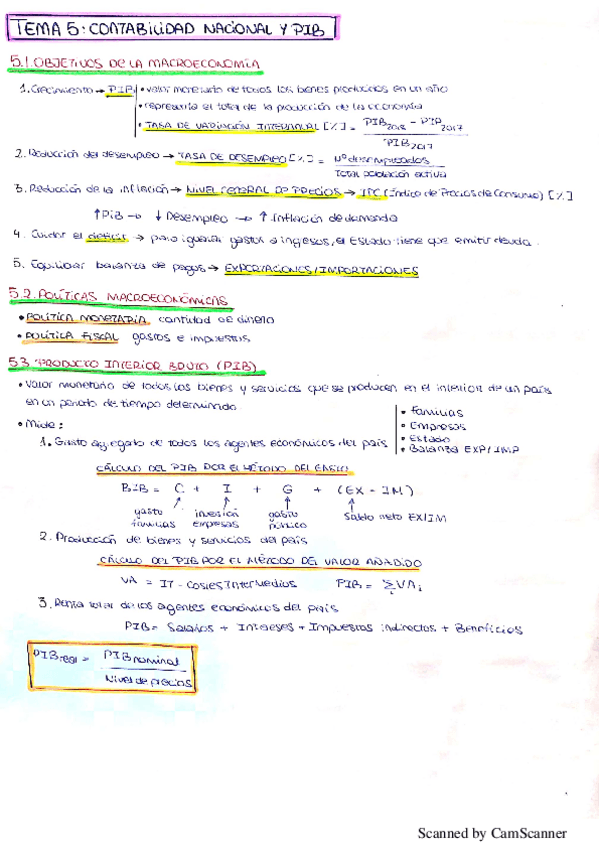 TEMA 5: CONTABILIDAD NACIONAL Y PIB
5.1. OBJETIVOS DE LA MACROECONOMÍA
1. Crecimiento → PIB • valor monetario de todos los bienes producidos en un año
• representa el total de la producción de la economía
• TASA DE VARIACIÓN INTERANUAL [%] = PIB2018 - PIB2017 / PIB2017
2. Reducción del desempleo → TASA DE DESEMPLEO [%] = Nº desempleados / Total población activa
3. Reducción de la inflación → NIVEL GENERAL DE PRECIOS → IPC (Índice de Precios de Consumo) [%]
↑ PIB → ↓ Desempleo → ↑ Inflación de demanda
4. Cuidar el déficit → para igualar gastos a ingresos, el Estado tiene que emitir deuda.
5. Equilibrar balanza de pagos → EXPORTACIONES/IMPORTACIONES
5.2. POLÍTICAS MACROECONÓMICAS
• POLÍTICA MONETARIA cantidad de dinero
• POLÍTICA FISCAL gastos e impuestos
5.3 PRODUCTO INTERIOR BRUTO (PIB)
• Valor monetario de todos los bienes y servicios que se producen en el interior de un país
en un periodo de tiempo determinado.
• Mide:
1. Gasto agregado de todos los agentes económicos del país
• Familias
• Empresas
• Estado
• Balanza EXP/IMP
CÁLCULO DEL PIB POR EL MÉTODO DEL GASTO
PIB = C + I + G + (EX - IM)
gasto familias inversión empresas gasto público saldo neto EX/IM
2. Producción de bienes y servicios del país
CÁLCULO DEL PIB POR EL MÉTODO DEL VALOR AÑADIDO
VA = IT - Costes Intermedios PIB = Σ VAi
3. Renta total de los agentes económicos del país
PIB = Salarios + Intereses + Impuestos indirectos + Beneficios
PIB real = PIB nominal / Nivel de precios
Scanned by CamScanner